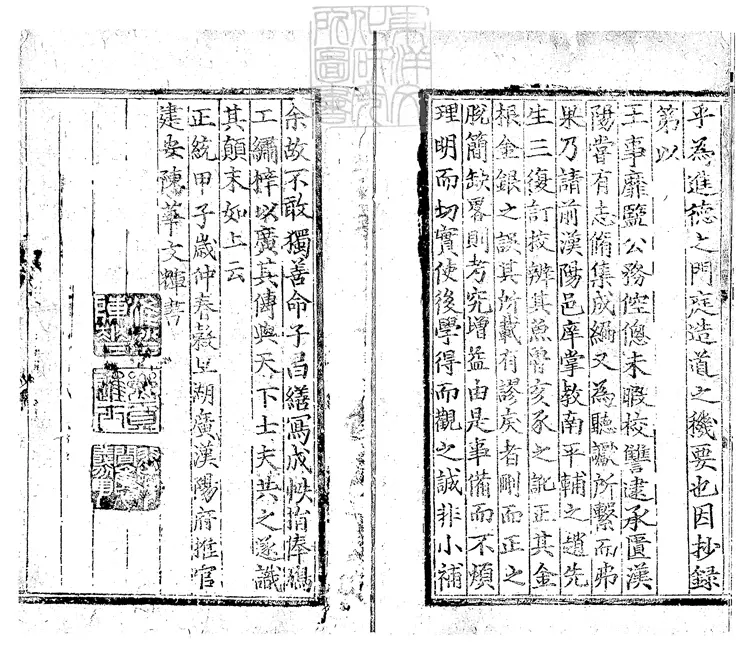 乎為進德之門庭造道之機要也因抄錄
第以
王事靡盬公務倥傯未暇校讐逮承匱漢
陽嘗有志脩集成編又為聽讞所繫而弗
果乃請前漢陽邑庠掌教南平輔之趙先
生三復訂挍辨其魚魯亥豕之訛正其金
根金銀之誤其所載有謬戾者刪而正之
脫簡缺畧則考究增益由是事備而不煩
理明而切實使後學得而觀之誠非小補
余故不敢獨善命子昌繕寫成帙捐俸鳩
工繡梓以廣其傳與天下士夫共之遂識
其顛末如上云
正統甲子歲仲春穀旦湖廣漢陽府推官
建安陳華文輝書